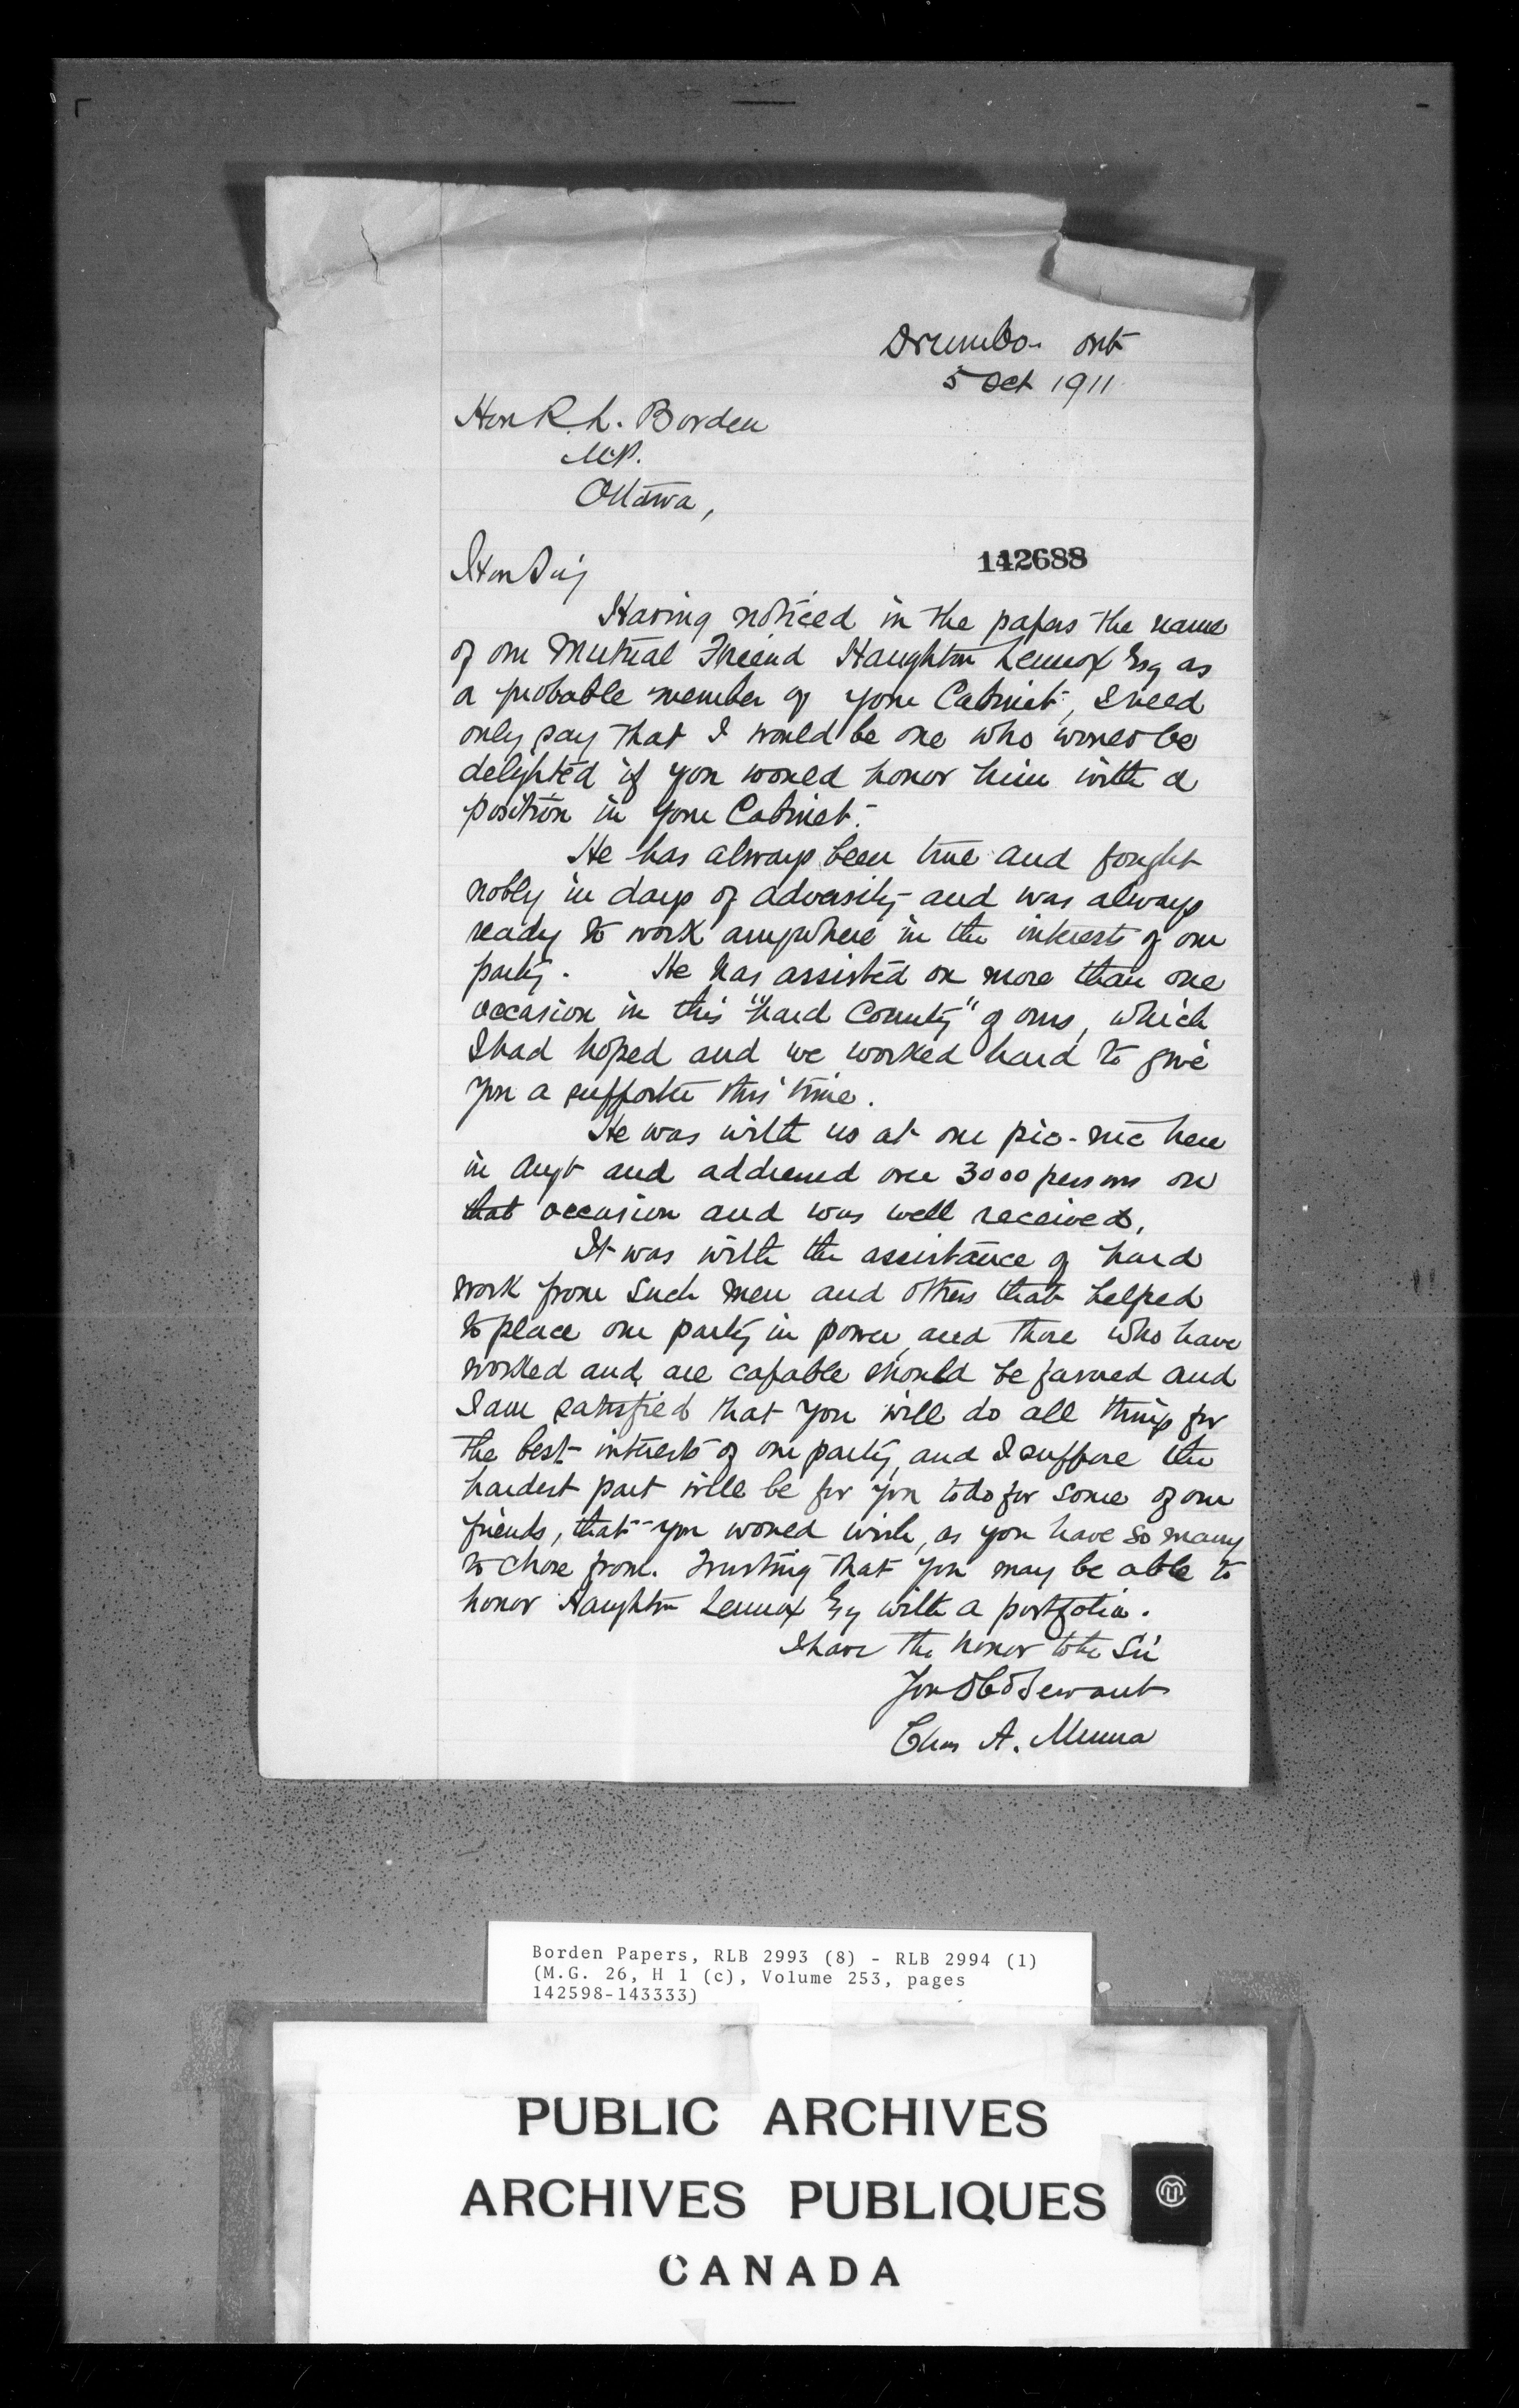 Drumbo. Ont
5 Oct 1911
Hon R. L. Borden
M.P.
Ottawa,
142688
Hon Sir,
Having noticed in the papers the name
of our Mutual Friend Haughton Lennox Esq as
a probable member of your Cabinet, I need
only say that I would be one who would be
delighted if you would honor him with a
position in your Cabinet.
He has always been true and fought
nobly in days of adversity and was always
ready to work anywhere in the interests of our
party. He has assisted on more than one
occasion in this "hard County" of ours, which
I had hoped and we worked hard to give
you a supporter this time.
He was with us at our pic-nic here
in Augt and addressed over 3000 persons on
that occasion and was well received.
It was with the assistance of hard
work from such men and others that helped
to place our party in power, and those who have
worked and are capable should be favored and
I am satisfied that you will do all things for
the best interests of our party, and I suppose the
hardest part will be for you to do for some of our
friends, that you would wish, as you have so many
to chose from. Trusting that you may be able to
honor Haughton Lennox Esq with a portfolio.
I have the honor to be Sir
Your Obd Servant
Chas A. Muma
Borden Papers, RLB 2993 (8) - RLB 2994 (1)
(M.G. 26, H 1 (c), Volume 253, pages
142598-143333)
PUBLIC ARCHIVES
ARCHIVES PUBLIQUES
CANADA